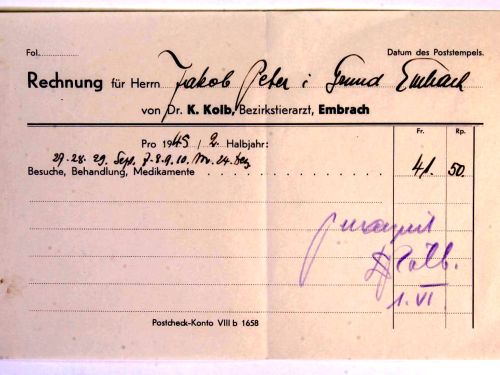 Fol.
Datum des Poststempels.
Rechnung für Herrn Jakob Peter i Grund Embrach
von Dr. K. Kolb, Bezirkstierarzt, Embrach
Fr. Rp.
Pro 1945 / 2 Halbjahr:
27. 28. 29. Sept. 7. 8. 9. 10. Nov. 24. Dez
Besuche, Behandlung, Medikamente 41. 50.
Kolb.
1. VI
Postcheck-Konto VIII b 1658